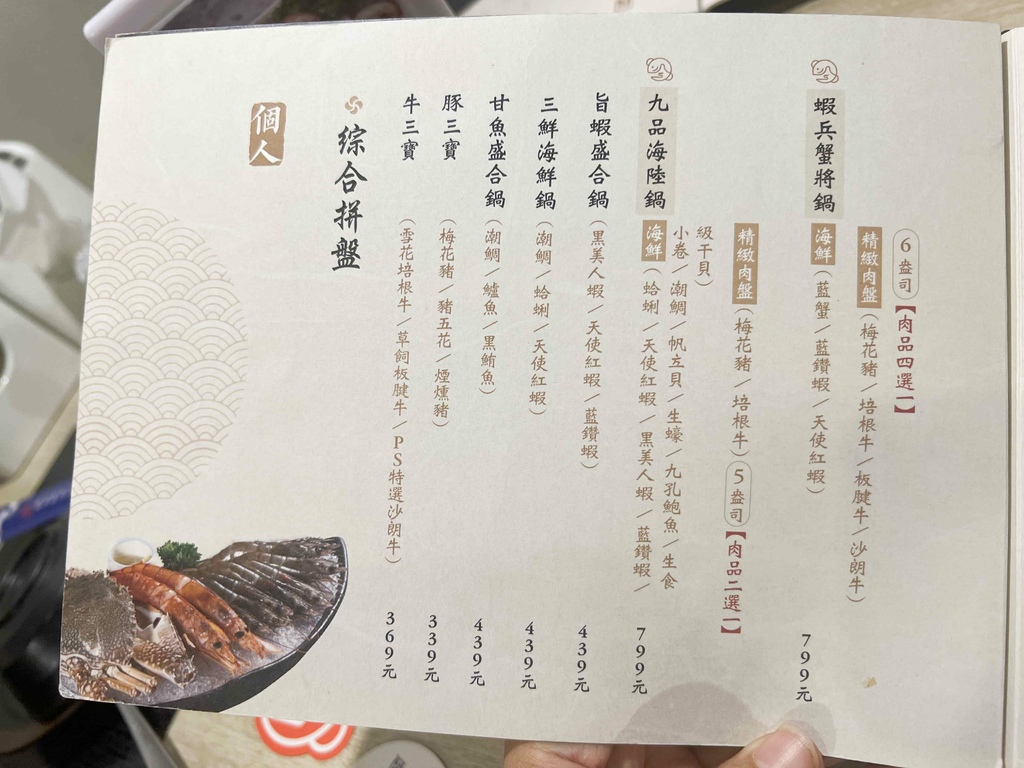 個人
綜合拼盤
牛三寶 (雪花培根牛/草飼板腱牛/PS特選沙朗牛) 369元
豚三寶 (梅花豬/豬五花/煙燻豬) 339元
甘魚盛合鍋 (潮鯛/鱸魚/黑鮪魚) 439元
三鮮海鮮鍋 (潮鯛/蛤蜊/天使紅蝦) 439元
旨蝦盛合鍋 (黑美人蝦/天使紅蝦/藍鑽蝦) 439元
九品海陸鍋 海鮮 (蛤蜊/天使紅蝦/黑美人蝦/藍鑽蝦/ 799元
小卷/潮鯛/帆立貝/生蠔/九孔鮑魚/生食
級干貝)
精緻肉盤 (梅花豬/培根牛) 5盎司【肉品二選一】
蝦兵蟹將鍋 海鮮 (藍蟹/藍鑽蝦/天使紅蝦) 799元
精緻肉盤 (梅花豬/培根牛/板腱牛/沙朗牛)
6盎司【肉品四選一】